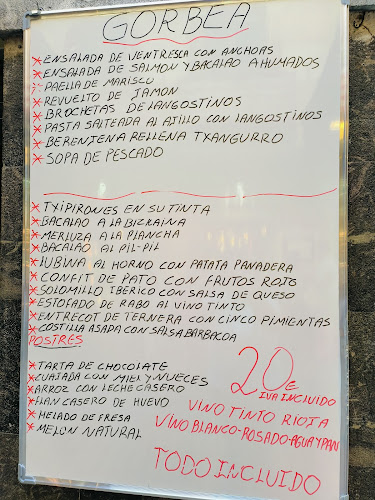 GORBEA
* ENSALADA DE VENTRESCA CON ANCHOAS
* ENSALADA DE SALMON Y BACALAO AHUMADOS
* PAELLA DE MARISCU
* REVUELTO DE JAMON
* BROCHETAS DE LANGOSTINOS
* PASTA SALTEADA AL AJILLO CON LANGOSTINOS
* BERENJENA RELLENA TXANGURRO
* SOPA DE PESCADO
* TXIPIRONES EN SU TINTA
* BACALAO A LA BIZKAINA
* MERLUZA A LA PLANCHA
* BACALAO AL PIL-PIL
* LUBINA AL HORNO CON PATATA PANADERA
* CONFIT DE PATO CON FRUTOS ROJO
* SOLOMILLO IBERICO CON SALSA DE QUESO
* ESTOFADO DE RABO AL VINO TINTO
* ENTRECOT DE TERNERA CON CINCO PIMIENTAS
* COSTILLA ASADA CON SALSA BARBACOA
POSTRES
* TARTA DE CHOCOLATE
* CUAJADA CON MIEL Y NUECES
* ARROZ CON LECHE CASERO
* FLAN CASERO DE HUEVO
* HELADO DE FRESA
* MELON NATURAL
20€
IVA INCLUIDO
VINO TINTO RIOJA
VINO BLANCO-ROSADO-AGUA Y PAN
TODO INCLUIDO